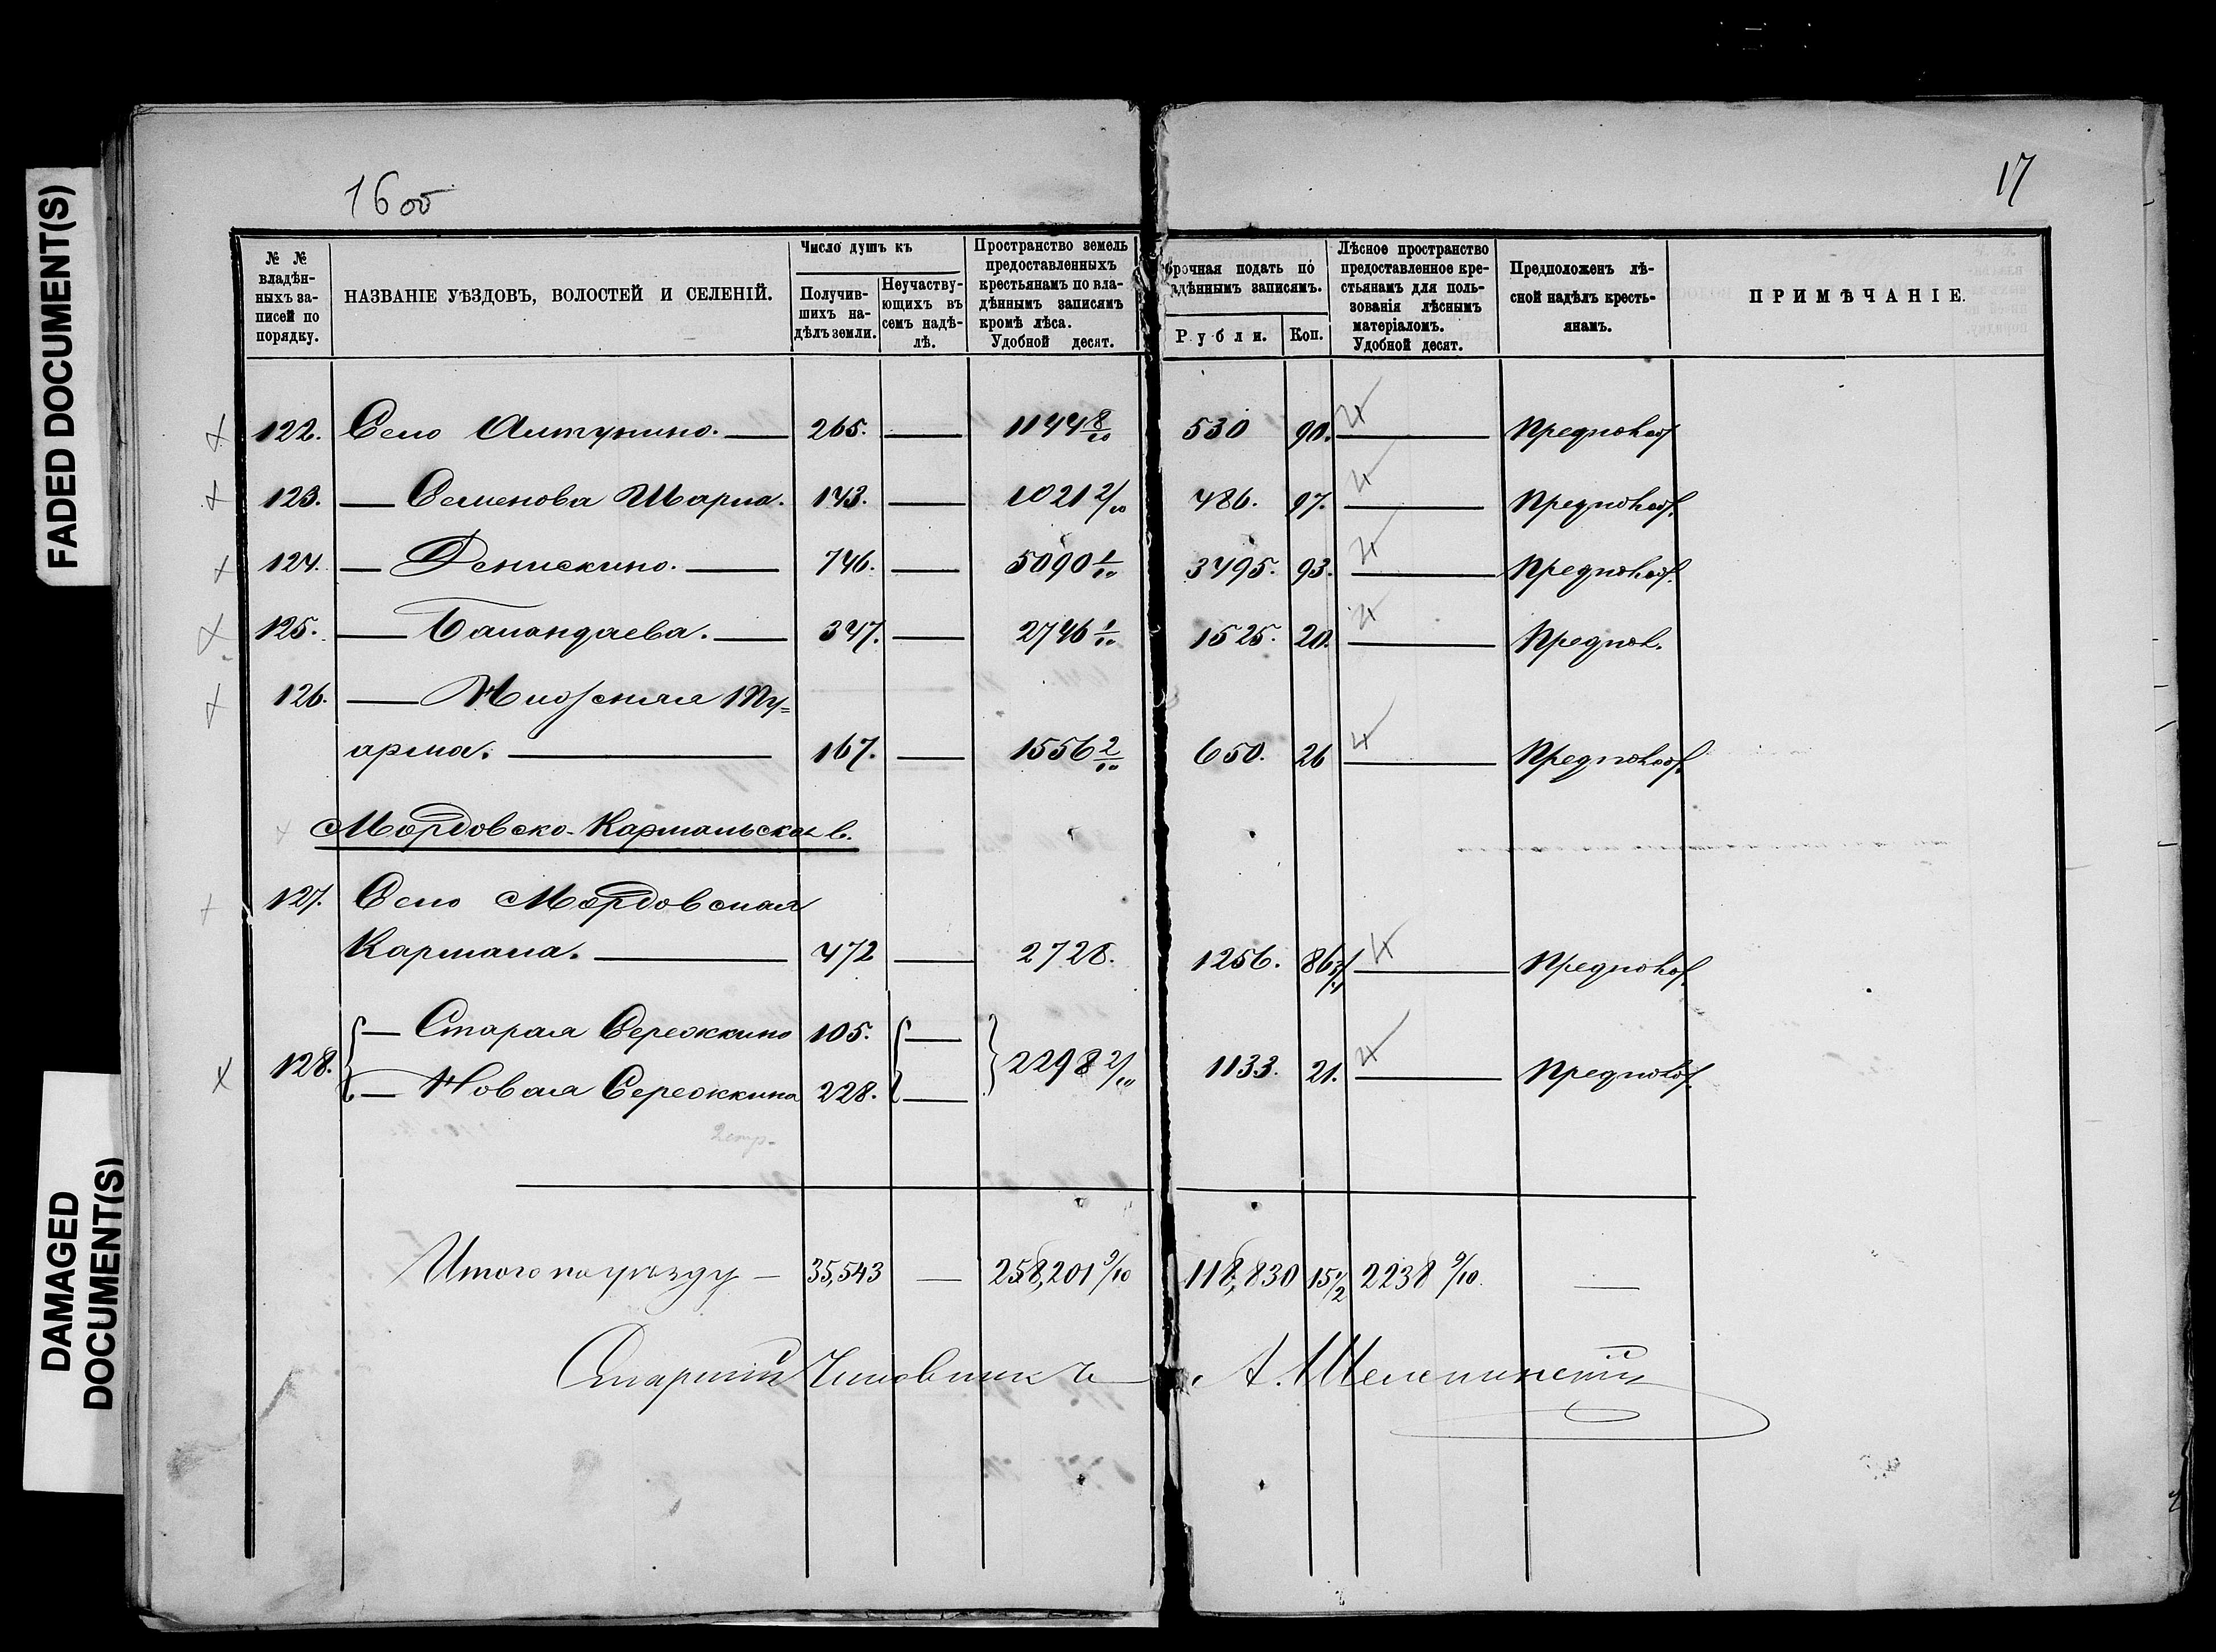 FADED DOCUMENT(S)
DAMAGED
DOCUMENT(S)
16 об
17
№ №
владѣн-
ныхъ за-
писей по
порядку.
НАЗВАНІЕ УѢЗДОВЪ, ВОЛОСТЕЙ И СЕЛЕНІЙ.
Число душъ къ
Получив-
шихъ на-
дѣлъ земли.
Неучаству-
ющихъ въ
семъ надѣ-
лѣ.
Пространство земель
предоставленныхъ
крестьянамъ по вла-
дѣннымъ записямъ
кромѣ лѣса.
Удобной десят.
брочная подать по
адѣннымъ записямъ.
Рубли. Коп.
Лѣсное пространство
предоставленное кре-
стьянамъ для поль-
зованія лѣснымъ
матеріаломъ.
Удобной десят.
Предположенъ лѣ-
сной надѣлъ кресть-
янамъ.
ПРИМѢЧАНІЕ.
122. Село Алтунино. — 265. — 1144 8/10 530 90. —
123. — Семенова Шарла. 143. — 1021 2/10 486. 97. —
124. — Денискино. — 746. — 5090 1/10 3495. 93. —
125. — Баландаева. — 347. — 2746 1/10 1525. 20. —
126. — Нижняя Ту=
арма. — 167. — 1556 2/10 650. 26 —
Мордовско-Кармальская в.
127. Село Мордовская
Кармала. — 472 — 2728. 1256. —
128. — Старая Сережкино 105. — 2298 2/10 1133. 21. —
— Новая Сережкина 228. —
Итого по уѣзду — 35,543 — 258,201 9/10 118,830 15 1/2 2238 9/10 —
Старшій Чиновникъ А. Шелепинскій